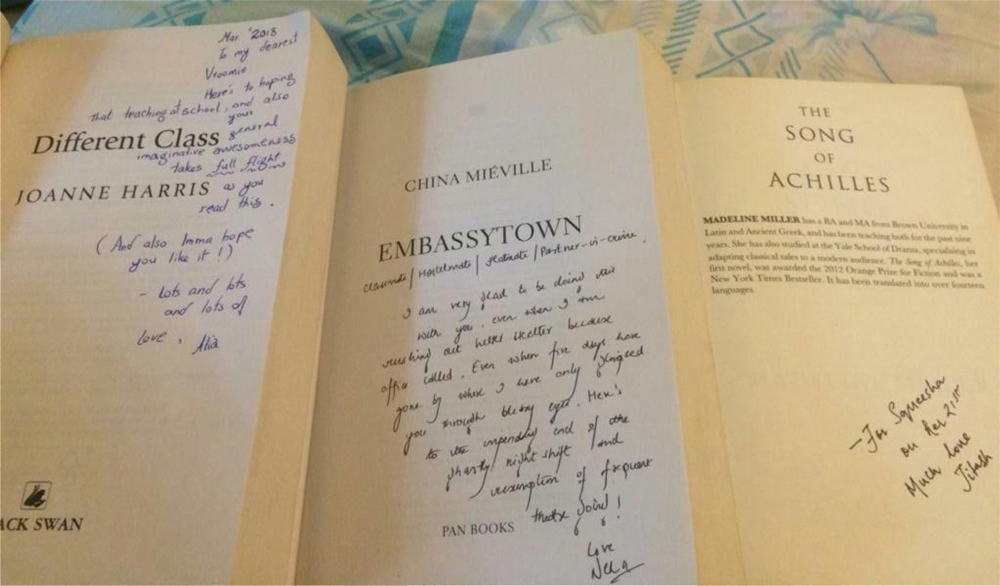 Mar '2018
To my dearest
Vroomie
Here's to hoping
that teaching at school, and also
your
Different Class general
imaginative awesomeness
takes full flight
JOANNE HARRIS as you
read this.
(And also Imma hope
you like it!)
- Lots and lots
and lots of
love,
ACK SWAN
CHINA MIÉVILLE
EMBASSYTOWN
classmate / Hostelmate / flatmate / Partner-in-crime.
I am very glad to be doing
with you. even when I am
rushing out helter skelter because
office called. Even when five days have
gone by where I have only glimpsed
you through bleary eyes. Here's
to the impending end of the
ghastly night shift and
resumption of frequent
theatre going!
Love
Neha
PAN BOOKS
THE
SONG
OF
ACHILLES
MADELINE MILLER has a BA and MA from Brown University in
Latin and Ancient Greek, and has been teaching both for the past nine
years. She has also studied at the Yale School of Drama, specialising in
adapting classical tales to a modern audience. The Song of Achilles, her
first novel, was awarded the 2012 Orange Prize for Fiction and was a
New York Times Bestseller. It has been translated into over fourteen
languages.
- For Squeesha
on her 21st
Much love